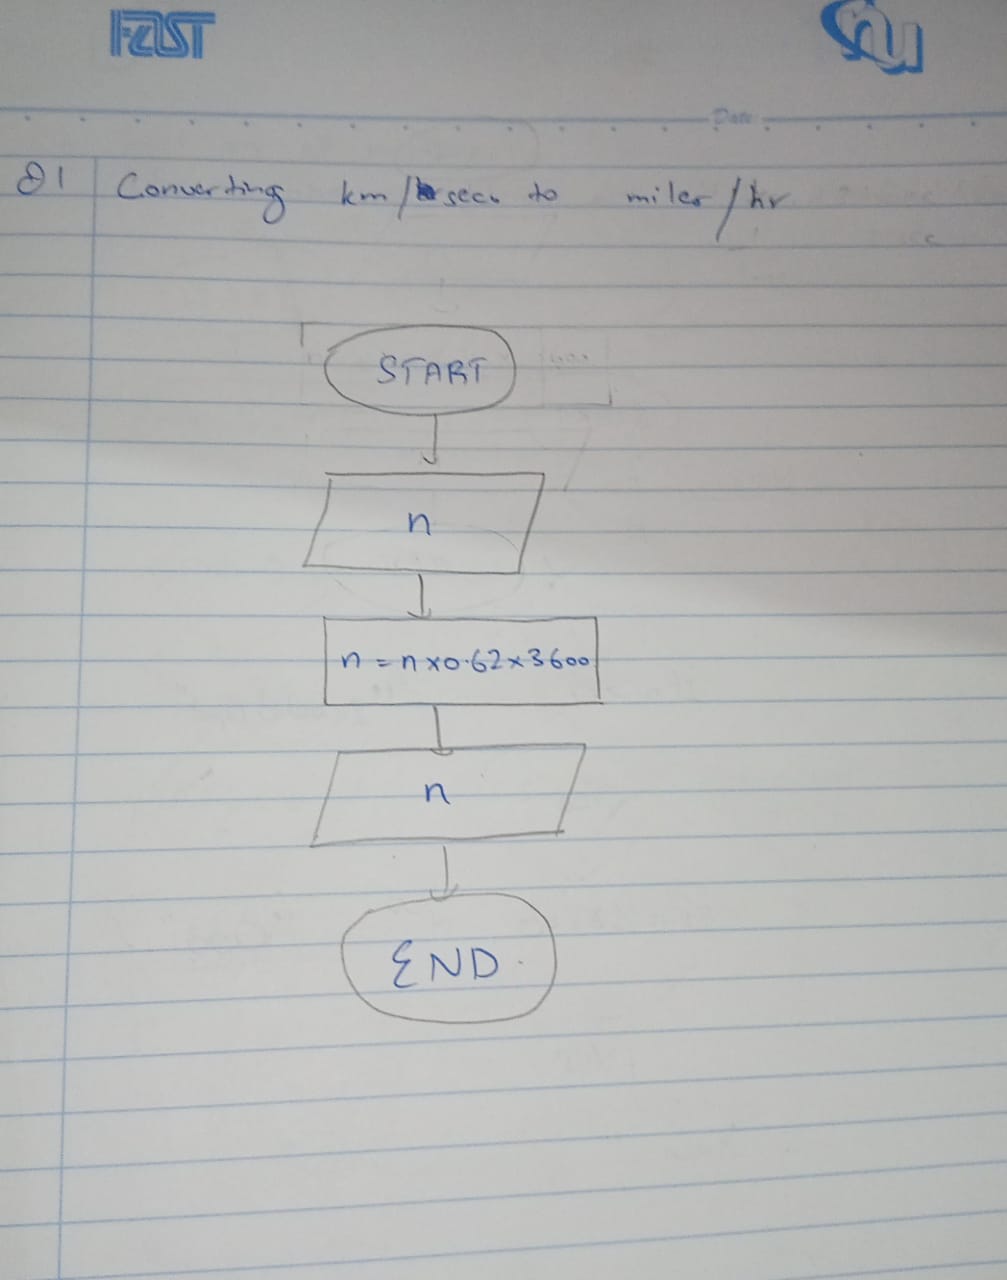 FAST
nu
Date
Q1 Converting km/sec to miles/hr
START
n
n = n x 0.62 x 3600
n
END